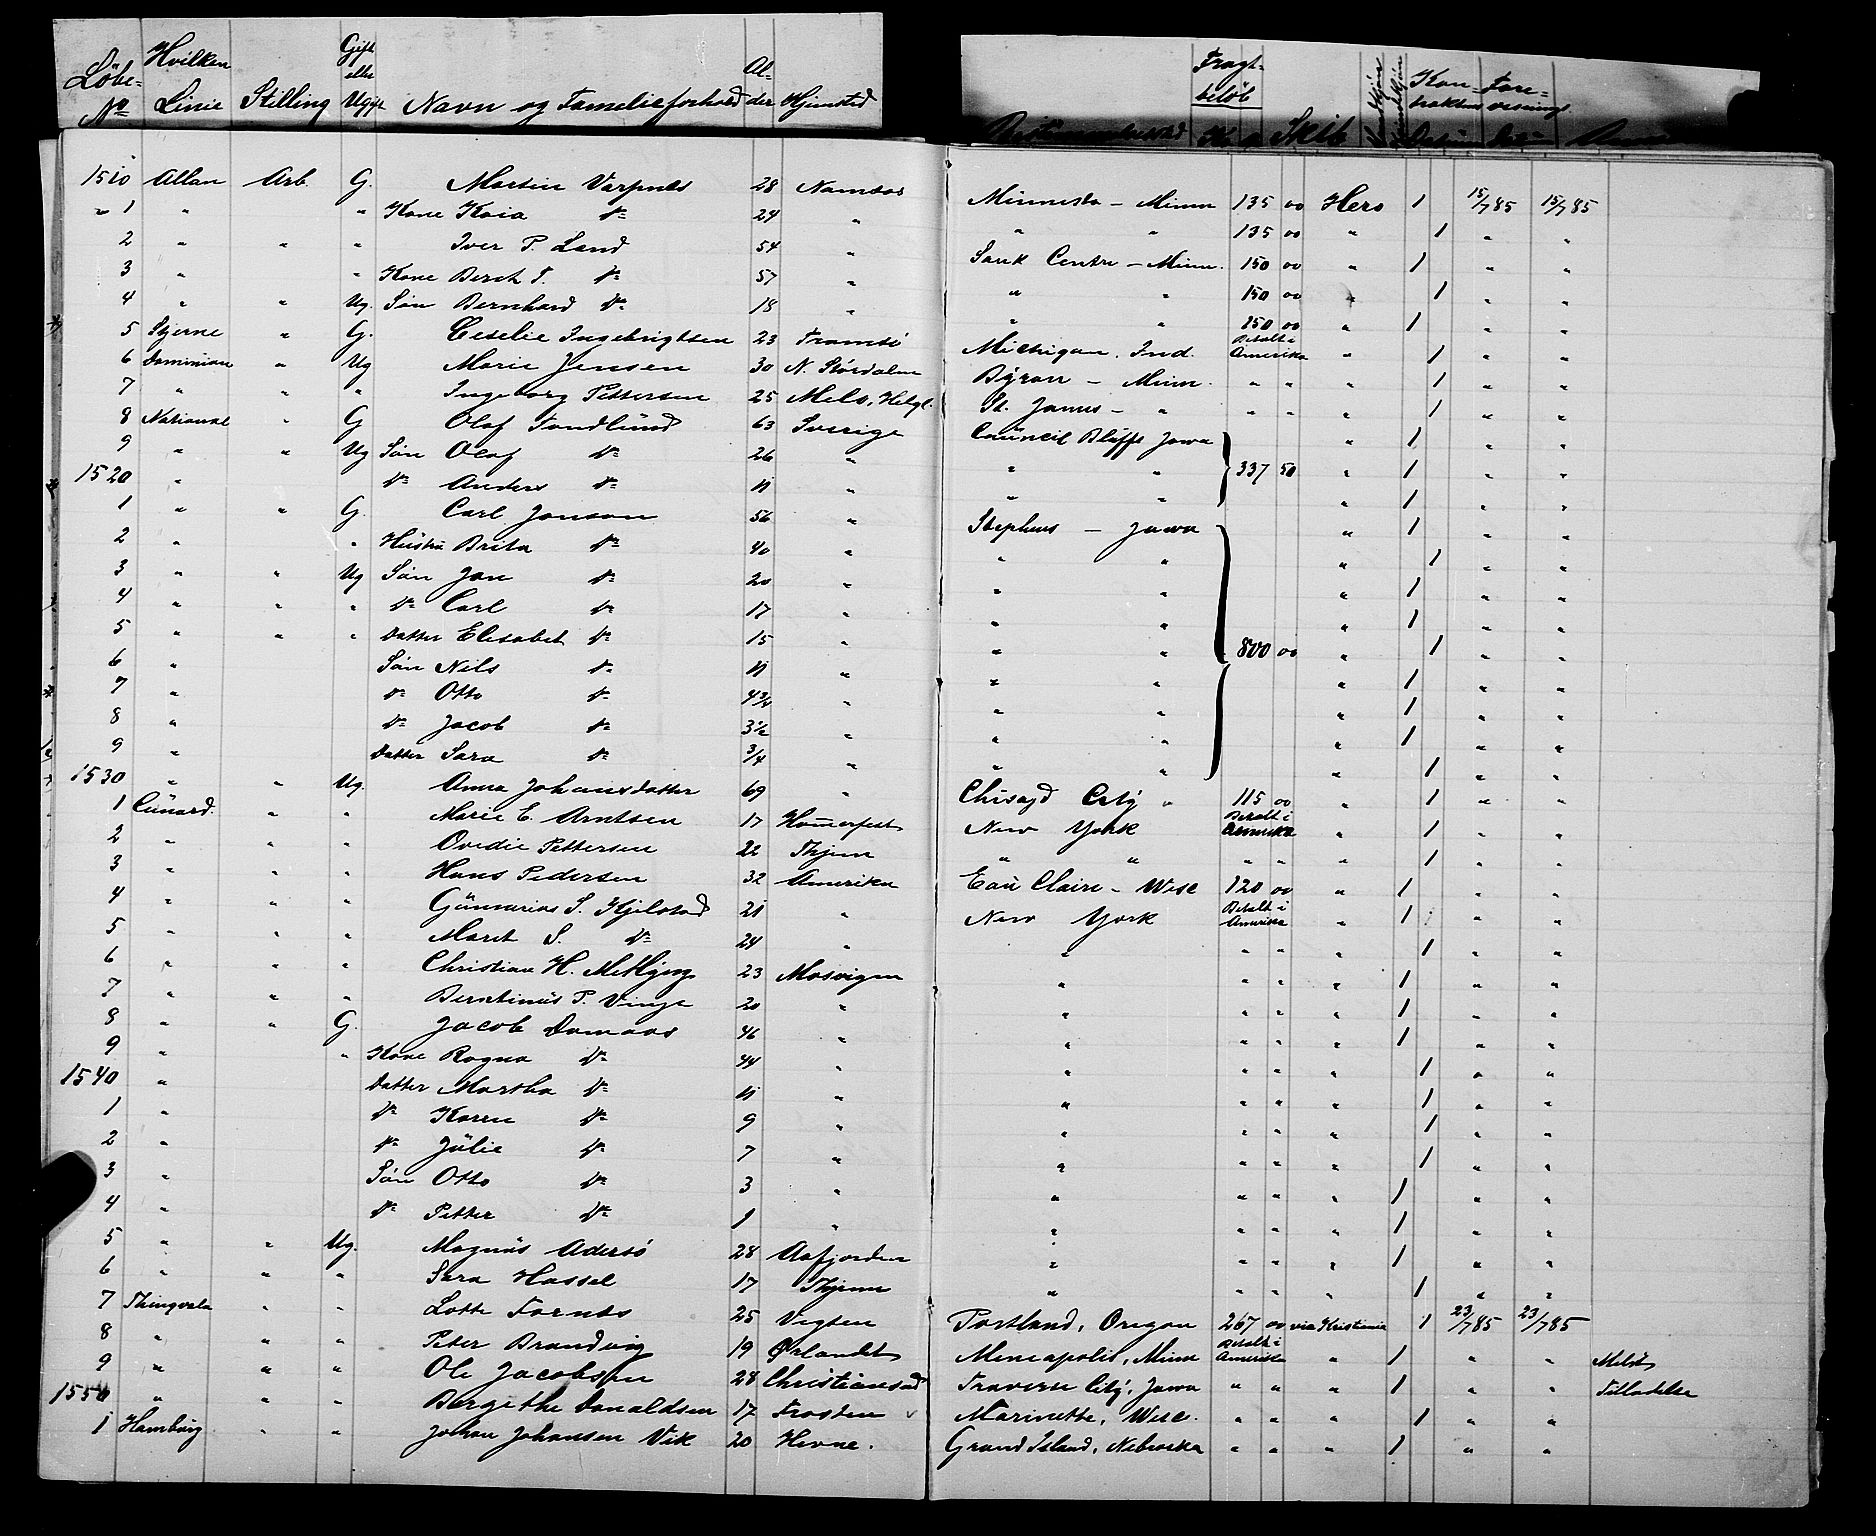 Löbe- No Hvilken Linie Stilling Gift eller Ugift Navn og Familieforhold Al- der Hjemsted Fragt- beløb Kr Skib Kon- traktens Datum Fore- visnings Datum
1510 Allan Arb. G. Martin Varpnes 28 Namsos Minnesota - Minn 135 00 Hero 1 15/7 85 15/7 85
" 1 " " Kone Kaia Do 24 " " " 135 00 " 1 " "
2 " " " Iver P. Land 54 " Sauk Centre - Minn. 150 00 " 1 " "
3 " " Kone Beret T. Do 57 " " " 150 00 " 1 " "
4 " " Ug. Søn Bernhard Do 18 " " " 150 00 " 1 " "
5 Stjerne " G. Ceselie Ingebrigtsen 23 Tromsö Michigan, Ind. Betalt i Amerika " 1 " "
6 Dominion " Ug Marie Jensen 30 N. Stördalen Byron - Minn. " " " 1 " "
7 " " " Ingeborg Pettersen 25 Melo, Helgl. St. James - " " " " 1 " "
8 National " G Olof Sundlund 63 Sverige Council Bluffs Jowa " 1 " "
9 " " Ug Søn Olof Do 26 " " " 337 50 " 1 " "
1520 " Do Anders Do 11 " " " " 1 " "
1 " " G. Carl Jonson 56 " Stephens - Jowa " 1 " "
2 " " Hustru Brita Do 40 " " " " 1 " "
3 " " Ug Søn Jon Do 20 " " " " 1 " "
4 " " " Do Carl Do 17 " " " " 1 " "
5 " " " Datter Elisabet Do 15 " " " 800 00 " 1 " "
6 " Søn Nils Do 11 " " " " 1 " "
7 " Do Otto Do 4 3/4 " " " " 1 " "
8 " Do Jacob Do 3 1/2 " " " " 1 " "
9 " Datter Sara Do 3/4 " " " " 1 " "
1530 " " Ug. Anna Johansdatter 69 " Chisago City " 115 00 " 1 " "
1 Cunard. " " Marie E. Arntsen 17 Hammerfest New York Betalt i Amerika " 1 " "
2 " " " Ovedie Pettersen 22 Thjem " " " " " 1 " "
3 " " " Hans Pedersen 32 Amerika Eau Claire - Wisc 120 00 " 1 " "
4 " " " Gunnarius S. Hjelstad 21 " New York Betalt i Amerika " 1 " "
5 " " " Maret S. Do 24 " " " " " 1 " "
6 " " " Christian H. 23 Mosvigen " " " " 1 " "
7 " " " Berntinus P. Vinge 20 " " " " " 1 " "
8 " " G. Jacob Damaas 46 " " " " " 1 " "
9 " " Kone Ragna Do 44 " " " " " 1 " "
1540 " Datter Martha Do 11 " " " " " 1 " "
1 " Do Karen Do 9 " " " " " 1 " "
2 " Do Julie Do 7 " " " " " 1 " "
3 " Søn Otto Do 3 " " " " " 1 " "
4 " Do Petter Do 1 " " " " " 1 " "
5 " " Ug. Magnus Adersö 28 Aafjorden " " " " 1 " "
6 " " " Sara Hassel 17 Thjem " " " " 1 " "
7 Thingvala " " Lotte Fornes 25 Vegten Portland, Oregon 267 00 via Kristiania 1 23/7 85 23/7 85
8 " " " Peter Brandvig 19 Ørlandet Mineapolis, Minn Betalt i Amerika " 1 " "
9 " " " Ole Jacobsen 28 Christiansud Traverse City, Jowa " " " 1 " " Tilladelse
1550 " " " Bergithe Donaldsen 17 Frosten Marinette, Wisc. " " " 1 " "
1 Hamburg " " Johan Johansen Vik 20 Hevne. Grand Island, Nebraska " " " 1 " "